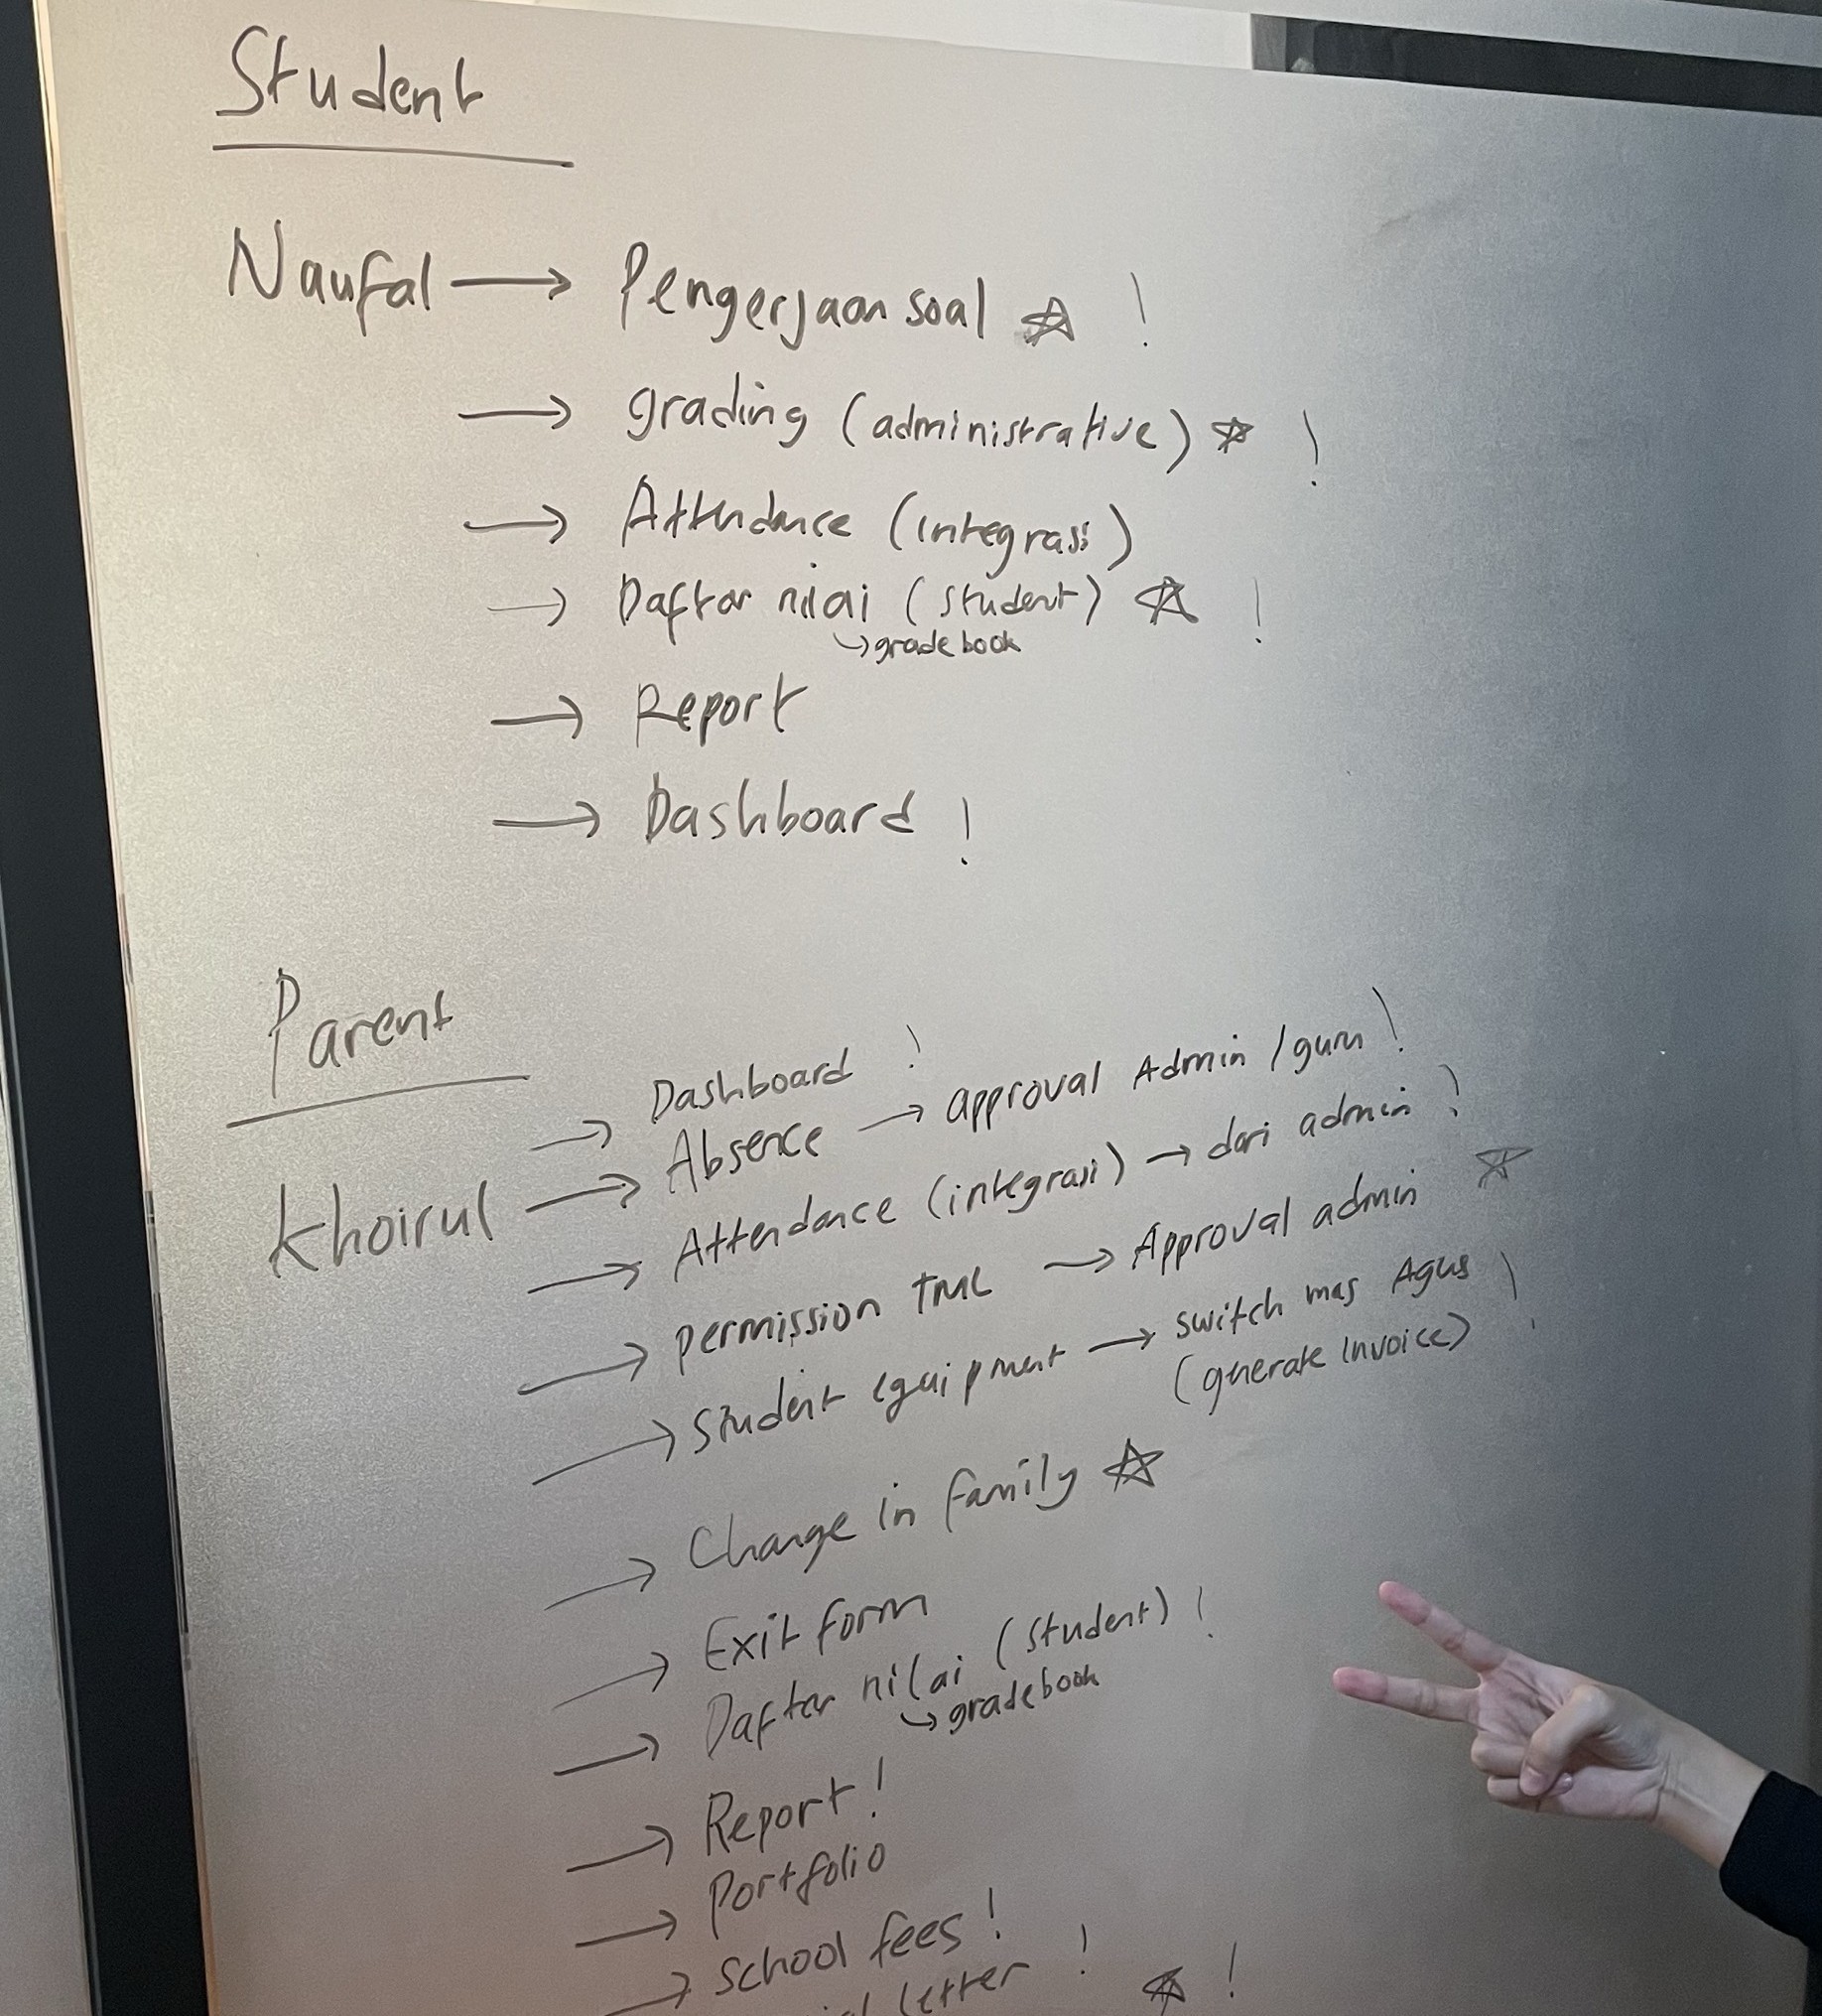 Student
Naufal → Pengerjaan soal ☆ !
→ grading (administrative) ☆ !
→ Attendance (integrasi)
→ Daftar nilai (student) ☆ !
↪ gradebook
→ Report
→ Dashboard !
Parent
→ Dashboard !
Khoirul → Absence → approval Admin / guru !
→ Attendance (integrasi) → dari admin !
→ permission TML → Approval admin ☆
→ Student equipment → switch mas Agus !
(generate invoice)
→ Change in family ☆
→ Exit form
→ Daftar nilai (student) !
↪ gradebook
→ Report !
→ Portfolio
→ School fees !
letter ! ☆ !